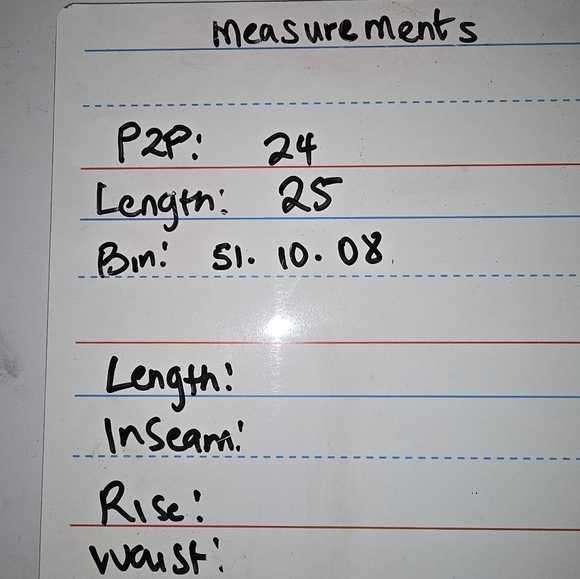 Measurements
P2P: 24
Length: 25
Bin: S1. 10. 08
Length:
Inseam:
Rise:
Waist: